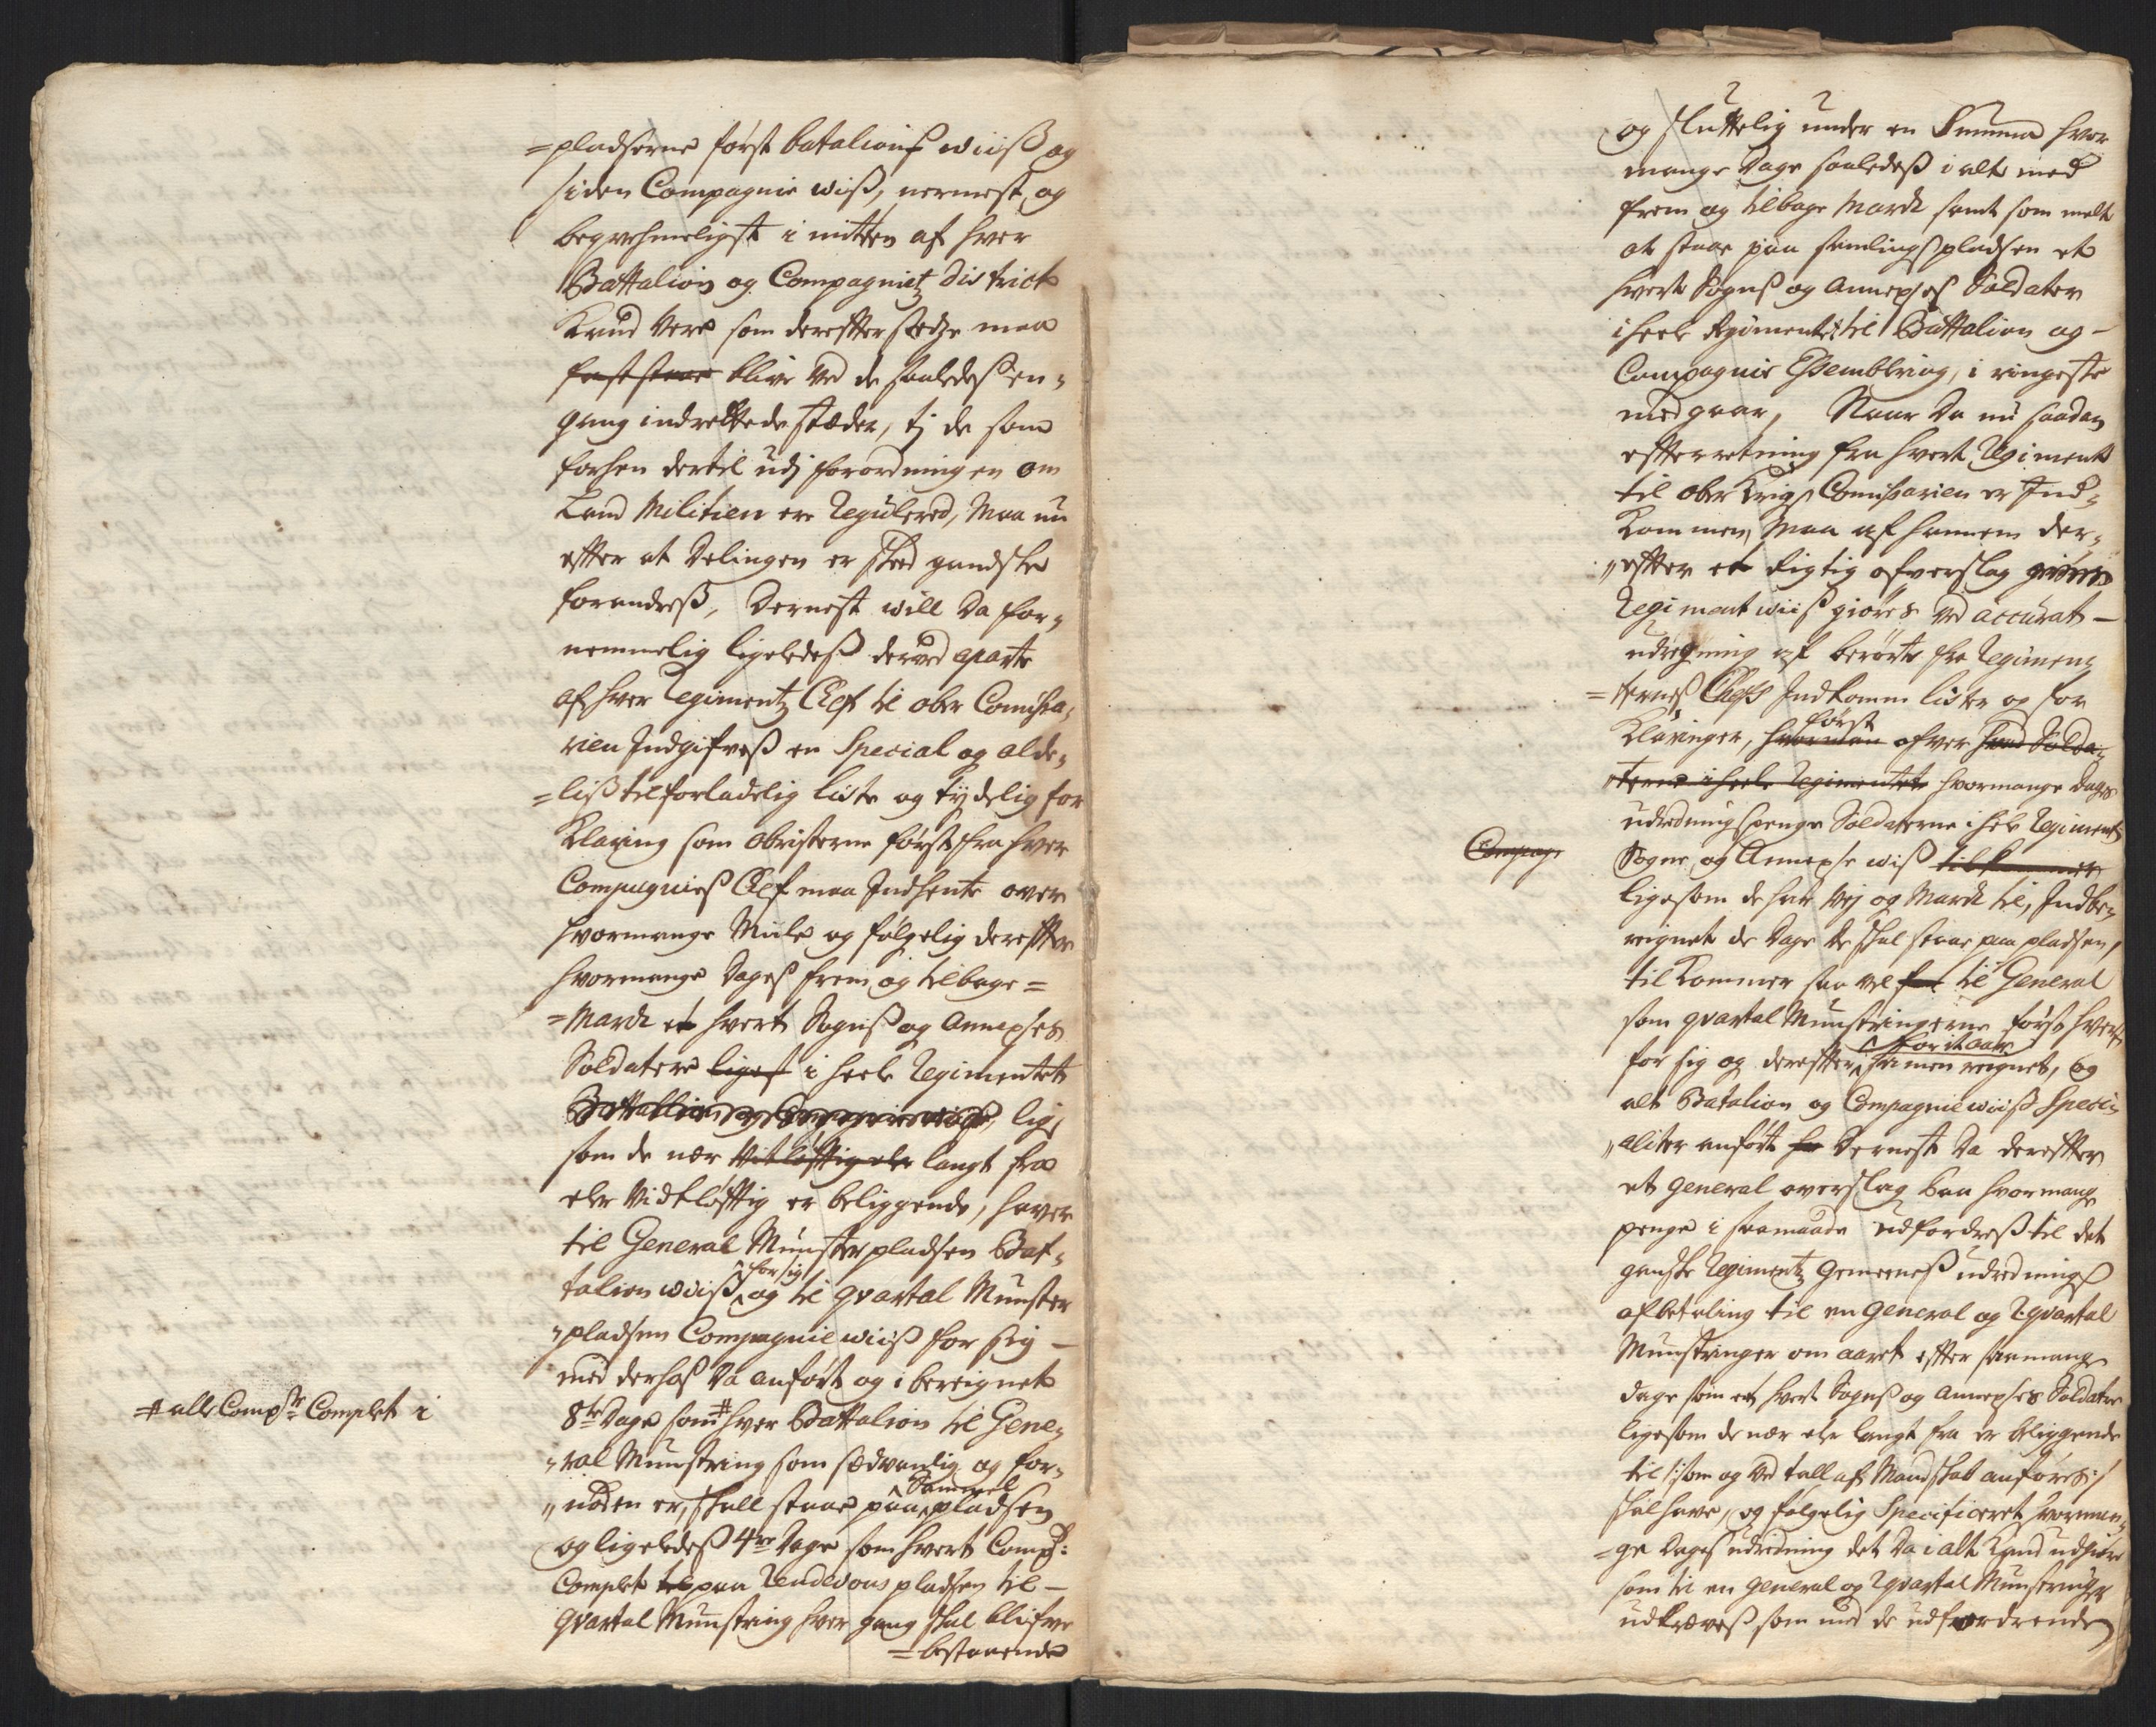 =pladserne først batalions wiiß og
siden Compagnie wiß, nermest og
beqvehmeligst i mitten af hver
Battalion og Compagnietz district
Kund være som derefter stedze maa
fast staae blive ved de saaledeß en„
gang indrettede stæder, tj de som
forhen dertil udj forordningen om
Land Militien ere Regulered, Maa nu
efter at Delingen er skeed gandske
forandreß, Dernest will da for„
nemmelig ligeledeß derved aparte
af hver Regimentz Chef til ober Comissa„
rien Indgifveß en Special og alde„
=liß tilforladelig liste og tydelig for
Klaring som obristerne først fra hver
Compagnieß Chef maa Indhente over
hvormange Miile og følgelig derefter
hvormange Dages frem og tilbage=
=March et hvert Sognß og annexses
Soldatere liges i heele Regimentet
Battallion og Compagnie wiße, lige
som de nær Vitløftig eller langt fra
eller Vidtløftig er beliggende, haver
til General Munster pladsen Bat„
talion wiiß for sig og til qvartal Munster
„pladsen Compagnie wiiß for sig –
med derhos da anført og ibereignet
8te Dage som # hver Battalion til Gene„
„ral Munstring som sædvanlig og for„
„nøden er, skall staae paa Sammel pladsen
og ligeledeß 4re Dage som hvert Comp:
Complet til paa Rendevous pladsen til –
qvartal Munstring hver gang skal blifve
=bestaaende
# alle Compe Complet i
og sluttelig under en Summa hvor
mange Dage saaledeß i alt med
frem og tilbage March samt som melt
at staae paa samlings pladsen et
hvert Sognß og Annexses Soldater
i heele Regimentet til Battalion og –
Compagnie Essembling, i ringeste
medgaar, Naar da nu saadan
efterretning fra hvert Regiment
til ober Krigs Comissarien er Ind„
Kommen, Maa af hannem der„
„efter et rigtig ofverslag giøres
Regiment wiiß giøres ved accurat –
udregning af berørte fra Regimen„
=terneß Chefs Indkomne lister og for
Klaringer, hvordan først ofver hvad Solda„
„terne i heele Regimentet hvormange Dages
udredning penge Soldaterne i hele Regimentet
Compag
Sogne og Annexse wiß tilkommer
ligesom de har vej og March til, Indbe„
reignet de Dage de skal staae paa pladsen,
til Kommer saa vel for til General
som qvartal Munstringerne først hver
for sig og derefter for it aar sammen reignet, og
alt Batalion og Compagnie wiiß Speci„
„aliter anført for Dernest da derefter
et General overslag paa hvormange
penge i saamaade udfordreß til det
gandske Regimentz Gemeeneß udrednings
afbetaling til en General og 2 qvartal
Munstringer om aaret efter saa mange
dage som et hvert Sognß og Annexses Soldater
ligesom de nær eller langt fra er beliggende
til /: som og ved tall af Mandskab anføres :/
skal have, og følgelig Specificeret hvorman„
=ge Dages udredning det da i alt Kand udgiøre
som til en General og 2 qvartal Munstringer
udkræveß, som med de udfordrende